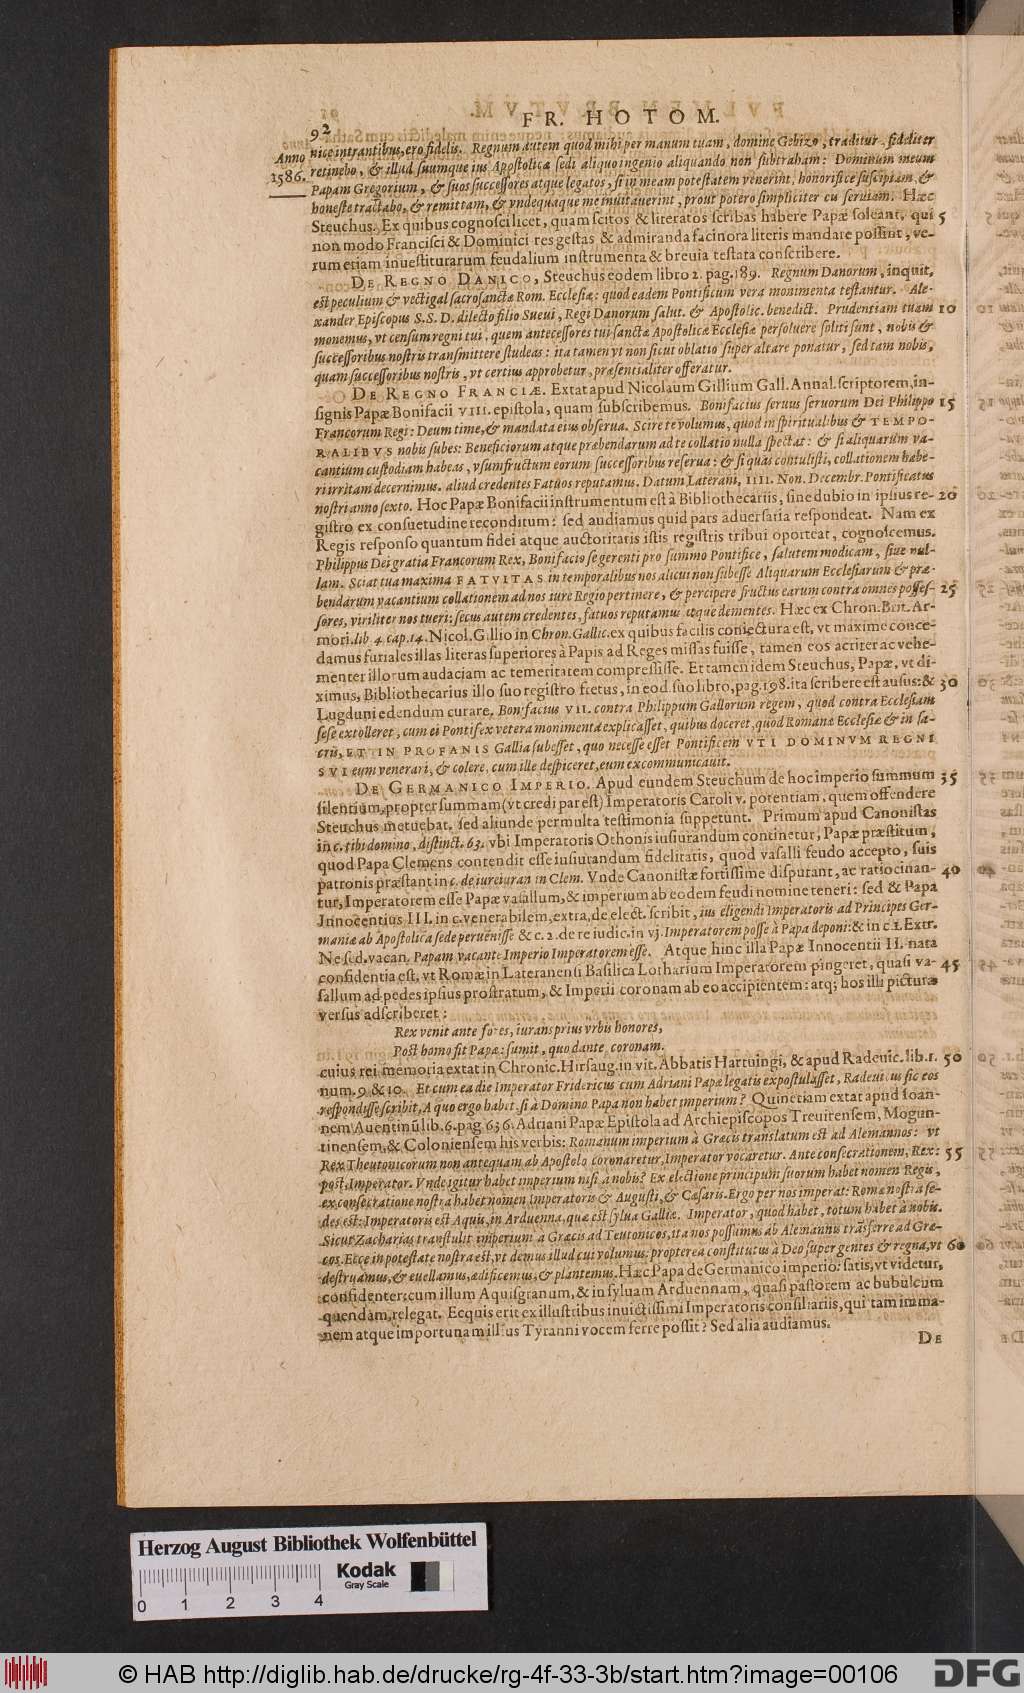 92
FR. HOTOM.
Anno
1586.
nice intrantibus, ero fidelis. Regnum autem quod mihi per manum tuam, domine Gebizo, traditur, fideliter
retinebo, & illud suumque ius Apostolicæ sedi aliquo ingenio aliquando non subtraham: Dominum meum
Papam Gregorium, & suos successores atque legatos, si in meam potestatem venerint, honorifice suscipiam, &
honeste tractabo, & remittam, & vndequaque me inuitauerint, prout potero simpliciter eu seruiam. Hæc
Steuchus. Ex quibus cognosci licet, quam scitos & literatos scribas habere Papæ soleant, qui 5
non modo Francisci & Dominici res gestas & admiranda facinora literis mandare possint, ve-
rum etiam inuestiturarum feudalium instrumenta & breuia testata conscribere.
DE REGNO DANICO, Steuchus eodem libro 2. pag. 189. Regnum Danorum, inquit,
est peculium & vectigal sacrosanctæ Rom. Ecclesiæ: quod eadem Pontificum vera monimenta testantur. Ale-
xander Episcopus S.S.D. dilecto filio Sueui, Regi Danorum salut. & Apostolic. benedict. Prudentiam tuam 10
monemus, vt censum regni tui, quem antecessores tui sanctæ Apostolicæ Ecclesiæ persoluere soliti sunt, nobis &
successoribus nostris transmittere studeas: ita tamen vt non sicut oblatio super altare ponatur, sed tam nobis,
quam successoribus nostris, vt certius approbetur, præsentialiter offeratur.
DE REGNO FRANCIÆ. Extat apud Nicolaum Gillium Gall. Annal. scriptorem, in-
signis Papæ Bonifacii VIII. epistola, quam subscribemus. Bonifacius seruus seruorum Dei Philippo 15
Francorum Regi: Deum time, & mandata eius obserua. Scire te volumus, quod in spiritualibus & TEMPO-
RALIBVS nobis subes: Beneficiorum atque præbendarum ad te collatio nulla spectat: & si aliquarum va-
cantium custodiam habeas, vsumfructum eorum successoribus reserua: & si quas contulisti, collationem habe-
ri irritam decernimus. aliud credentes Fatuos reputamus. Datum Laterani, IIII. Non. Decembr. Pontificatus
nostri anno sexto. Hoc Papæ Bonifacii instrumentum est à Bibliothecariis, sine dubio in ipsius re- 20
gistro ex consuetudine reconditum: sed audiamus quid pars aduersaria respondeat. Nam ex
Regis responso quantum fidei atque auctoritatis istis registris tribui oporteat, cognoscemus.
Philippus Dei gratia Francorum Rex, Bonifacio se gerenti pro summo Pontifice, salutem modicam, siue nul-
lam. Sciat tua maxima FATVITAS in temporalibus nos alicui non subesse Aliquarum Ecclesiarum & præ-
bendarum vacantium collationem ad nos iure Regio pertinere, & percipere fructus earum contra omnes posses- 25
sores, viriliter nos tueri: secus autem credentes, fatuos reputamus atque dementes. Hæc ex Chron. Brit. Ar-
mori. lib. 4. cap. 14. Nicol. Gillio in Chron. Gallic. ex quibus facilis coniectura est, vt maxime conce-
damus furiales illas literas superiores à Papis ad Reges missas fuisse, tamen eos acriter ac vehe-
menter illorum audaciam ac temeritatem compressisse. Et tamen idem Steuchus, Papæ, vt di-
ximus, Bibliothecarius illo suo registro fretus, in eod. suo libro, pag. 198. ita scribere est ausus: & 30
Lugduni edendum curare, Bonifacius VII. contra Philippum Gallorum regem, quod contra Ecclesiam
sese extolleret, cum ei Pontifex vetera monimenta explicasset, quibus doceret, quod Romanæ Ecclesiæ & in sa-
cris, ET IN PROFANIS Gallia subesset, quo necesse esset Pontificem VTI DOMINVM REGNI
SVI eum venerari, & colere, cum ille despiceret, eum excommunicauit.
DE GERMANICO IMPERIO. Apud eundem Steuchum de hoc imperio summum 35
silentium, propter summam (vt credi par est) Imperatoris Caroli V. potentiam, quem offendere
Steuchus metuebat. sed aliunde permulta testimonia suppetunt. Primum apud Canonistas
in c. tibi domino, distinct. 63. vbi Imperatoris Othonis iusiurandum continetur, Papæ præstitum,
quod Papa Clemens contendit esse iusiurandum fidelitatis, quod vasalli feudo accepto, suis
patronis præstant in c. de iureiuran in Clem. Vnde Canonistæ fortissime disputant, ac ratiocinan- 40
tur, Imperatorem esse Papæ vasallum, & imperium ab eodem feudi nomine teneri: sed & Papa
Innocentius III. in c. venerabilem, extra, de elect. scribit, ius eligendi Imperatoris ad Principes Ger-
maniæ ab Apostolica sede peruenisse & c. 2. de re iudic. in vj. Imperatorem posse à Papa deponi: & in c. 1. Extr.
Ne sed. vacan. Papam vacante Imperio Imperatorem esse. Atque hinc illa Papæ Innocentii II. nata
confidentia est, vt Romæ in Lateranensi Basilica Lotharium Imperatorem pingeret, quasi va- 45
sallum ad pedes ipsius prostratum, & Imperii coronam ab eo accipientem: atq; hos illi picturæ
versus adscriberet:
Rex venit ante fores, iurans prius vrbis honores,
Post homo fit Papæ: sumit, quo dante, coronam.
cuius rei memoria extat in Chronic. Hirsaug. in vit. Abbatis Hartuingi, & apud Radeuic. lib. 1. 50
num. 9 & 10. Et cum ea die Imperator Fridericus cum Adriani Papæ legatis expostulasset, Radeuicus sic eos
respondisse scribit, A quo ergo habet. si à Domino Papa non habet imperium? Quinetiam extat apud Ioan-
nem Auentinū lib. 6. pag. 636. Adriani Papæ Epistola ad Archiepiscopos Treuirensem, Mogun-
tinensem, & Coloniensem his verbis: Romanum imperium à Græcis translatum est ad Alemannos: vt
Rex Theutonicorum non antequam ab Apostolo coronaretur, Imperator vocaretur. Ante consecrationem, Rex: 55
post, Imperator. Vnde igitur habet imperium nisi à nobis? Ex electione principum suorum habet nomen Regis,
ex consecratione nostra habet nomen Imperatoris & Augusti, & Cæsaris. Ergo per nos imperat: Roma nostra se-
des est: Imperatoris est Aquis, in Arduenna, quæ est sylua Galliæ. Imperator, quod habet, totum habet à nobis.
Sicut Zacharias transtulit imperium a Græcis ad Teutonicos, ita nos possumus ab Alemannis trāsferre ad Græ-
cos. Ecce in potestate nostra est, vt demus illud cui volumus, propterea constitutus à Deo super gentes & regna, vt 60
destruamus, & euellamus, ædificemus, & plantemus. Hæc Papa de Germanico imperio: satis, vt videtur,
confidenter: cum illum Aquisgranum, & in syluam Arduennam, quasi pastorem ac bubulcum
quendam, relegat. Ecquis erit ex illustribus inuictissimi Imperatoris consiliariis, qui tam imma-
nem atque importunam illius Tyranni vocem ferre possit? Sed alia audiamus.
DE
Herzog August Bibliothek Wolfenbüttel
Kodak
Gray Scale
0 1 2 3 4
© HAB http://diglib.hab.de/drucke/rg-4f-33-3b/start.htm?image=00106
DFG